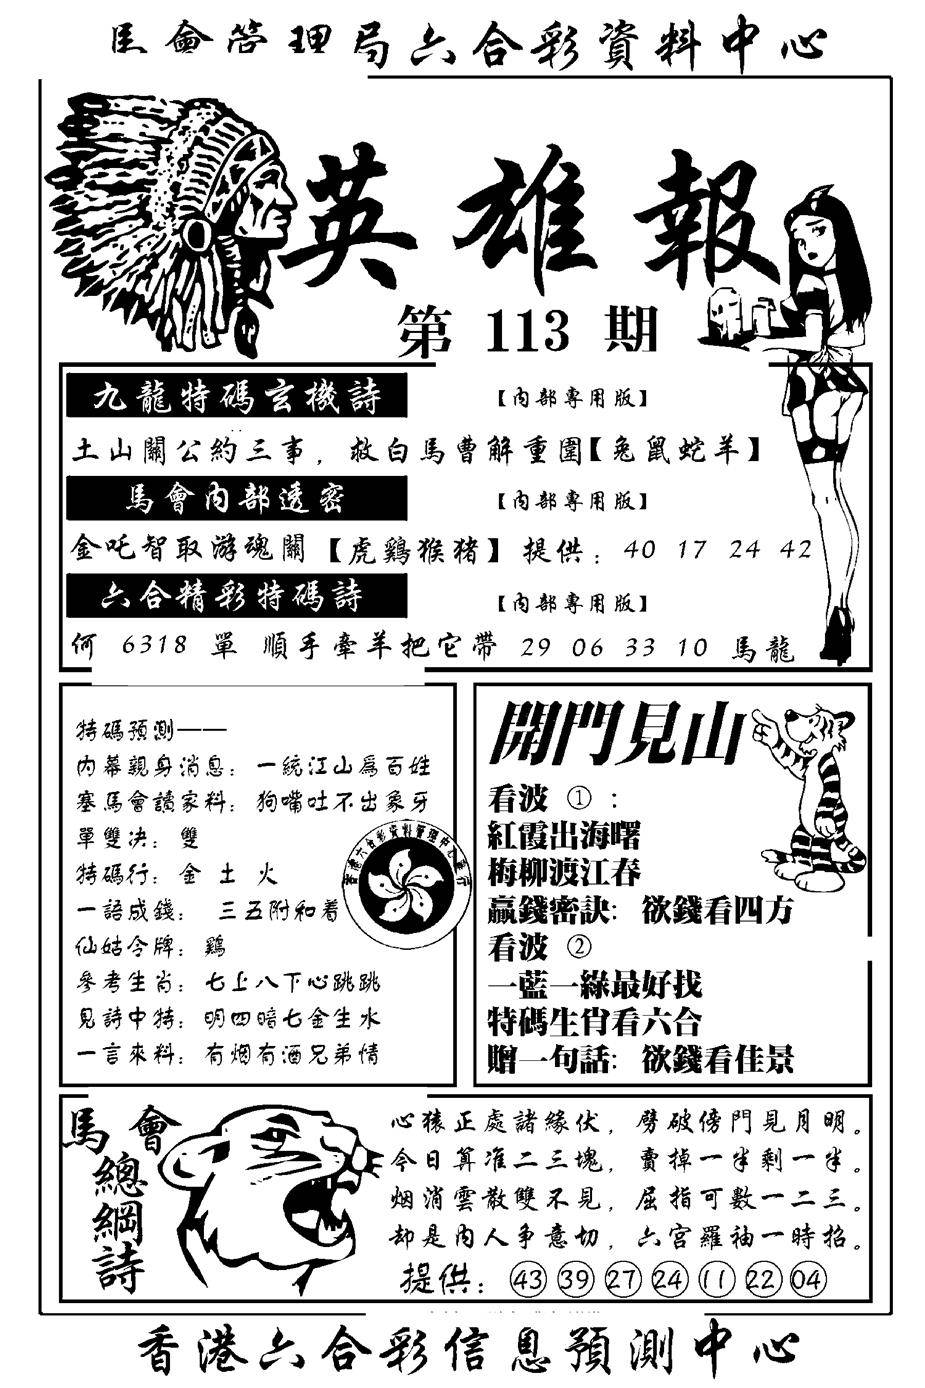 馬會管理局六合彩資料中心
英雄報
第 113 期
九龍特碼玄機詩
【內部專用版】
土山關公約三事，救白馬曹解重圍【兔鼠蛇羊】
馬會內部透密
【內部專用版】
金吒智取游魂關【虎鷄猴猪】提供：40 17 24 42
六合精彩特碼詩
【內部專用版】
何 6318 單 順手牽羊把它帶 29 06 33 10 馬龍
特碼預測——
內幕親身消息：一統江山爲百姓
塞馬會讀家料：狗嘴吐不出象牙
單雙决：雙
特碼行：金 土 火
一語成錢： 三五附和着
仙姑令牌：鷄
參考生肖：七上八下心跳跳
見詩中特：明四暗七金生水
一言來料：有烟有酒兄弟情
香港六合彩資料管理中心發行
開門見山
看波 ①：
紅霞出海曙
梅柳渡江春
贏錢密訣：欲錢看四方
看波 ②
一藍一綠最好找
特碼生肖看六合
贈一句話：欲錢看佳景
馬會總綱詩
心猿正處諸緣伏，劈破傍門見月明。
今日算准二三塊，賣掉一半剩一半。
烟消雲散雙不見，屈指可數一二三。
却是內人争意切，六宮羅袖一時招。
提供：㊸ ㊴ ㉗ ㉔ ⑪ ㉒ 04
香港六合彩信息預測中心